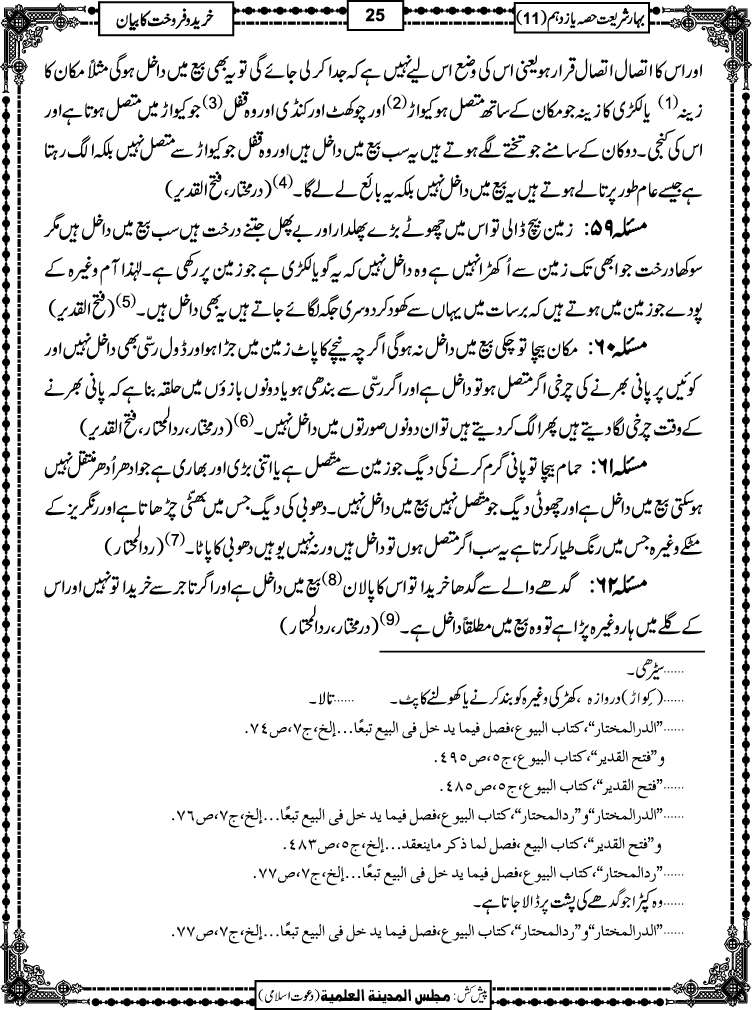 بہارِ شریعت حصہ یازدہم (11)
25
خرید و فروخت کا بیان
اور اس کا اتصال اتصال قرار ہو یعنی اس کی وضع اس لیے نہیں ہے کہ جدا کر لی جائے گی تو یہ بھی بیع میں داخل ہوگی مثلاً مکان کا
زینہ (1) یا لکڑی کا زینہ جو مکان کے ساتھ متصل ہو کیواڑ (2) اور چوکھٹ اور کنڈی اور وہ قفل (3) جو کیواڑ میں متصل ہوتا ہے اور
اس کی کنجی۔ دوکان کے سامنے جو تختے لگے ہوتے ہیں یہ سب بیع میں داخل ہیں اور وہ قفل جو کیواڑ سے متصل نہیں بلکہ الگ رہتا
ہے جیسے عام طور پر تالے ہوتے ہیں یہ بیع میں داخل نہیں بلکہ یہ بائع لے لے گا۔ (4) (درمختار، فتح القدیر)
مسئلہ ۵۹: زمین بیچ ڈالی تو اس میں چھوٹے بڑے پھلدار اور بے پھل جتنے درخت ہیں سب بیع میں داخل ہیں مگر
سوکھا درخت جو ابھی تک زمین سے اُکھڑا نہیں ہے وہ داخل نہیں کہ یہ گویا لکڑی ہے جو زمین پر رکھی ہے۔ لہٰذا آم وغیرہ کے
پودے جو زمین میں ہوتے ہیں کہ برسات میں یہاں سے کھود کر دوسری جگہ لگائے جاتے ہیں یہ بھی داخل ہیں۔ (5) (فتح القدیر)
مسئلہ ۶۰: مکان بیچا تو چکی بیع میں داخل نہ ہوگی اگرچہ نیچے کا پاٹ زمین میں جڑا ہو اور ڈول رسّی بھی داخل نہیں اور
کوئیں پر پانی بھرنے کی چرخی اگر متصل ہو تو داخل ہے اور اگر رسّی سے بندھی ہو یا دونوں بازوؤں میں حلقہ بنا ہے کہ پانی بھرنے
کے وقت چرخی لگا دیتے ہیں پھر الگ کر دیتے ہیں تو ان دونوں صورتوں میں داخل نہیں۔ (6) (درمختار، ردالمحتار، فتح القدیر)
مسئلہ ۶۱: حمام بیچا تو پانی گرم کرنے کی دیگ جو زمین سے متّصل ہے یا اتنی بڑی اور بھاری ہے جو ادھر اُدھر منتقل نہیں
ہوسکتی بیع میں داخل ہے اور چھوٹی دیگ جو متصل نہیں بیع میں داخل نہیں۔ دھوبی کی دیگ جس میں بھٹی چڑھاتا ہے اور رنگریز کے
مٹکے وغیرہ جس میں رنگ طیار کرتا ہے یہ سب اگر متصل ہوں تو داخل ہیں ورنہ نہیں یوہیں دھوبی کا پاٹا۔ (7) (ردالمحتار)
مسئلہ ۶۲: گدھے والے سے گدھا خریدا تو اس کا پالان (8) بیع میں داخل ہے اور اگر تاجر سے خریدا تو نہیں اور اس
کے گلے میں ہار وغیرہ پڑا ہے تو وہ بیع میں مطلقاً داخل ہے۔ (9) (درمختار، ردالمحتار)
......سیڑھی۔
......(کِواڑ) دروازہ، کھڑکی وغیرہ کو بند کرنے یا کھولنے کا پٹ۔ ......تالا۔
......"الدرالمختار"،کتاب البیوع،فصل فیما ید خل فی البیع تبعًا...إلخ،ج۷،ص۷۴.
و"فتح القدیر"،کتاب البیوع،ج۵،ص۴۹۵.
......"فتح القدیر"،کتاب البیوع،ج۵،ص۴۸۵.
......"الدرالمختار"و"ردالمحتار"،کتاب البیوع،فصل فیما ید خل فی البیع تبعًا...إلخ،ج۷،ص۷۶.
و"فتح القدیر"،کتاب البیع ،فصل لما ذکر ماینعقد...إلخ،ج۵،ص۴۸۳.
......"ردالمحتار"،کتاب البیوع،فصل فیما ید خل فی البیع تبعًا...إلخ،ج۷،ص۷۷.
......وہ کپڑا جو گدھے کی پشت پر ڈالا جاتا ہے۔
......"الدرالمختار"و"ردالمحتار"،کتاب البیوع،فصل فیما ید خل فی البیع تبعًا...إلخ،ج۷،ص۷۷.
پیش کش: مجلس المدینة العلمیة (دعوت اسلامی)